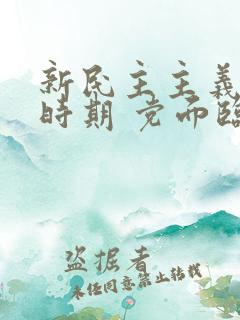 新民主主義
時期 党面臨
盗掘者
未经同意禁止转载